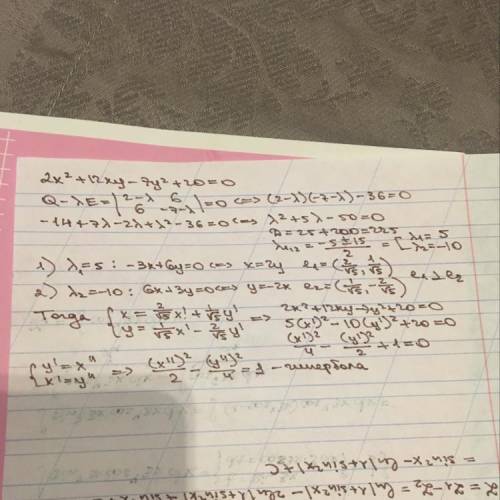 2x² + 12xy - 7y² + 20 = 0
Q - λE = |2-λ 6; 6 -7-λ| = 0 <=> (2-λ)(-7-λ) - 36 = 0
-14 + 7λ - 2λ + λ² - 36 = 0 <=> λ² + 5λ - 50 = 0
D = 25 + 200 = 225
λ₁,₂ = (-5 ± 15)/2 = [λ₁ = 5 λ₂ = -10
1) λ₁ = 5 : -3x + 6y = 0 <=> x = 2y e₁ = (2/√5, 1/√5)
e₁ ⊥ e₂
2) λ₂ = -10 : 6x + 3y = 0 <=> y = -2x e₂ = (1/√5, -2/√5)
Тогда {x = 2/√5 x' + 1/√5 y' y = 1/√5 x' - 2/√5 y' => 2x² + 12xy - 7y² + 20 = 0
5(x')² - 10(y')² + 20 = 0
(x')²/4 - (y')²/2 + 1 = 0
{y' = x'' x' = y'' => (x'')²/2 - (y'')²/4 = 1 - гипербола
= sin²x - ln|1 + sin²x| + C